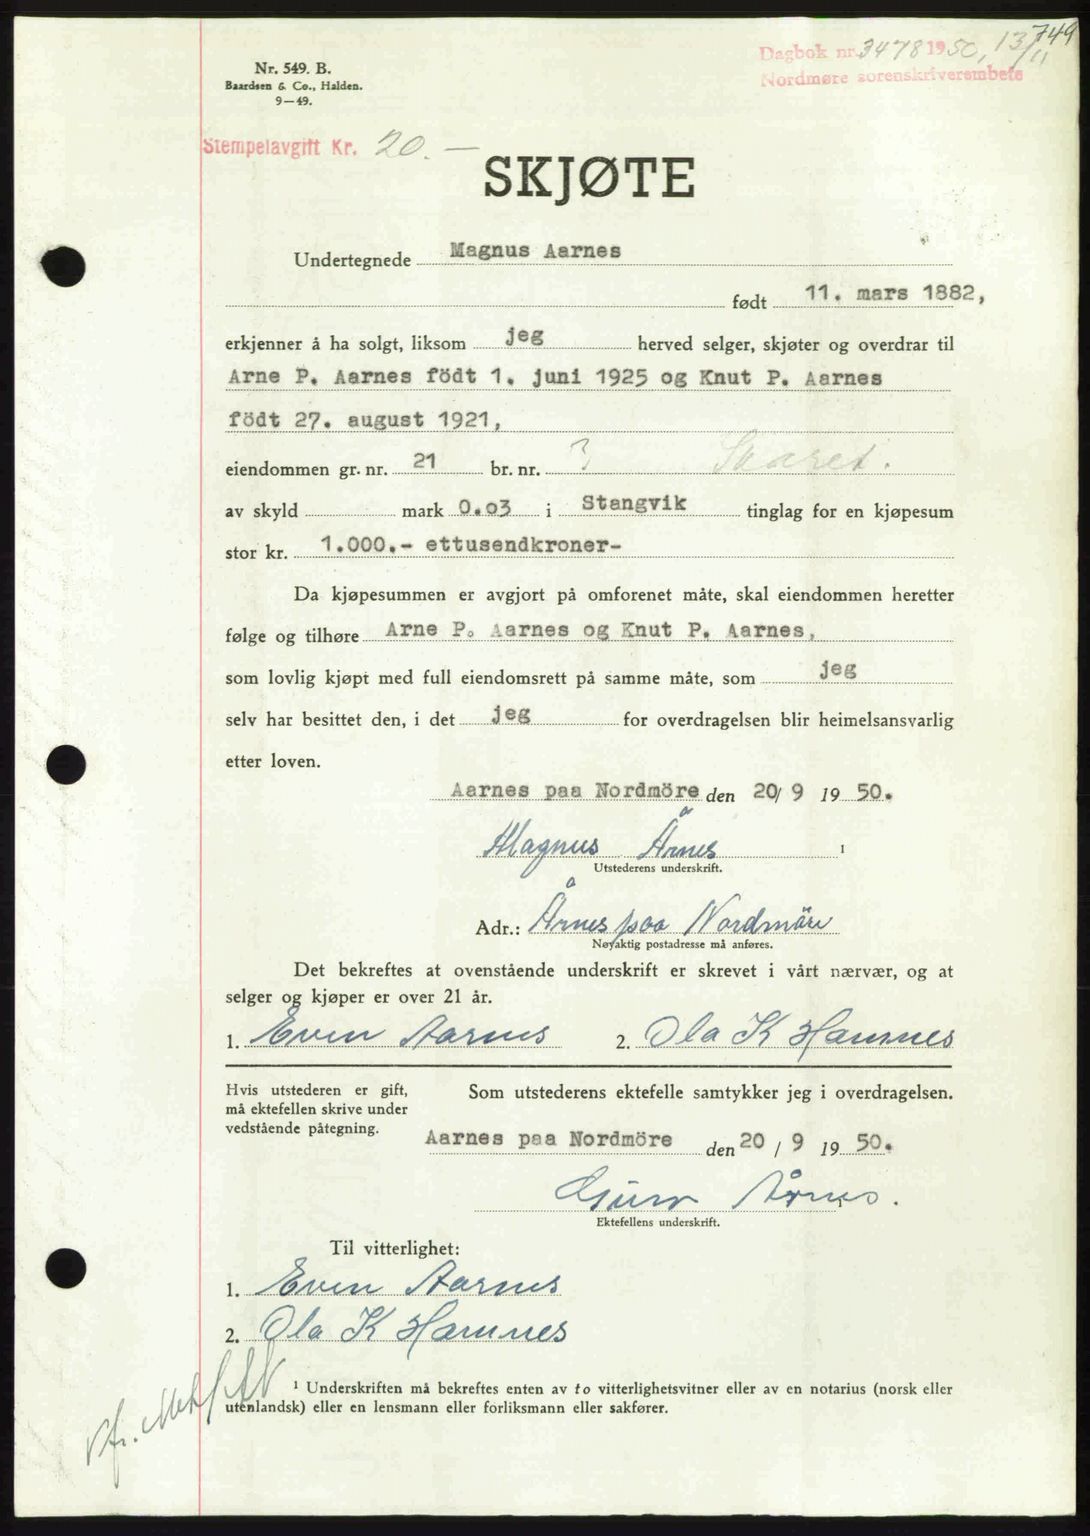 749
Dagbok nr. 3478 1950, 13/11
Nordmøre sorenskriverembete
Nr. 549. B.
Baardsen & Co., Halden.
9—49.
Stempelavgift Kr. 20.—
SKJØTE
Undertegnede Magnus Aarnes
født 11. mars 1882,
erkjenner å ha solgt, liksom jeg herved selger, skjøter og overdrar til
Arne P. Aarnes födt 1. juni 1925 og Knut P. Aarnes
födt 27. august 1921,
eiendommen gr. nr. 21 br. nr. 3
av skyld mark 0.03 i Stangvik tinglag for en kjøpesum
stor kr. 1.000.- ettusendkroner-
Da kjøpesummen er avgjort på omforenet måte, skal eiendommen heretter
følge og tilhøre Arne P. Aarnes og Knut P. Aarnes,
som lovlig kjøpt med full eiendomsrett på samme måte, som jeg
selv har besittet den, i det jeg for overdragelsen blir heimelsansvarlig
etter loven.
Aarnes paa Nordmöre den 20/ 9 19 50.
Magnus Årnes 1
Utstederens underskrift.
Adr.: Årnes paa Nordmöre
Nøyaktig postadresse må anføres.
Det bekreftes at ovenstående underskrift er skrevet i vårt nærvær, og at
selger og kjøper er over 21 år.
1. Even Aarnes 2. Ola K Hamnes
Hvis utstederen er gift,
må ektefellen skrive under
vedstående påtegning.
Som utstederens ektefelle samtykker jeg i overdragelsen.
Aarnes paa Nordmöre den 20 / 9 19 50.
Guro Årnes.
Ektefellens underskrift.
Til vitterlighet:
1. Even Aarnes
2. Ola K Hamnes
1 Underskriften må bekreftes enten av to vitterlighetsvitner eller av en notarius (norsk eller
utenlandsk) eller en lensmann eller forliksmann eller sakfører.